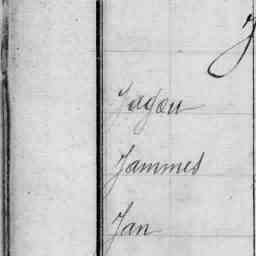 J
Jagou
Jammes
Jan